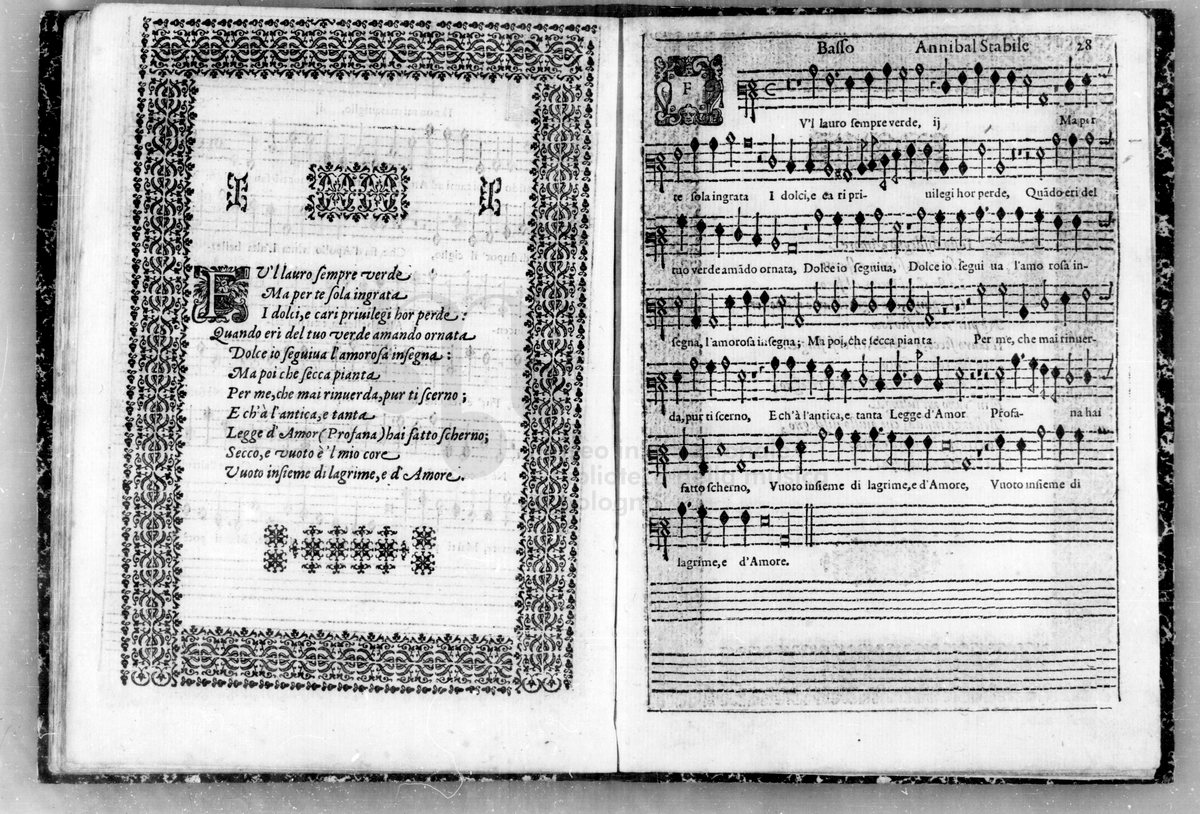 FV'l lauro sempre verde
Ma per te sola ingrata
I dolci, e cari priuilegi hor perde:
Quando eri del tuo verde amando ornata
Dolce io seguiua l'amorosa insegna:
Ma poi che secca pianta
Per me, che mai rinuerda, pur ti scerno;
E ch'à l'antica, e tanta
Legge d'Amor (Profana) hai fatto scherno;
Secco, e vuoto è 'l mio core
Vuoto insieme di lagrime, e d'Amore.
Basso Annibal Stabile 28
FV'l lauro sempre verde, ij Ma per
te sola ingrata I dolci, e ca ri pri- uilegi hor perde, Quãdo eri del
tuo verde amãdo ornata, Dolce io seguiua, Dolce io segui ua l'amo rosa in-
segna, l'amorosa insegna; Ma poi, che secca pianta Per me, che mai rinuer-
da, pur ti scerno, E ch'à l'antica, e tanta Legge d'Amor Profa- na hai
fatto scherno, Vuoto insieme di lagrime, e d'Amore, Vuoto insieme di
lagrime, e d'Amore.